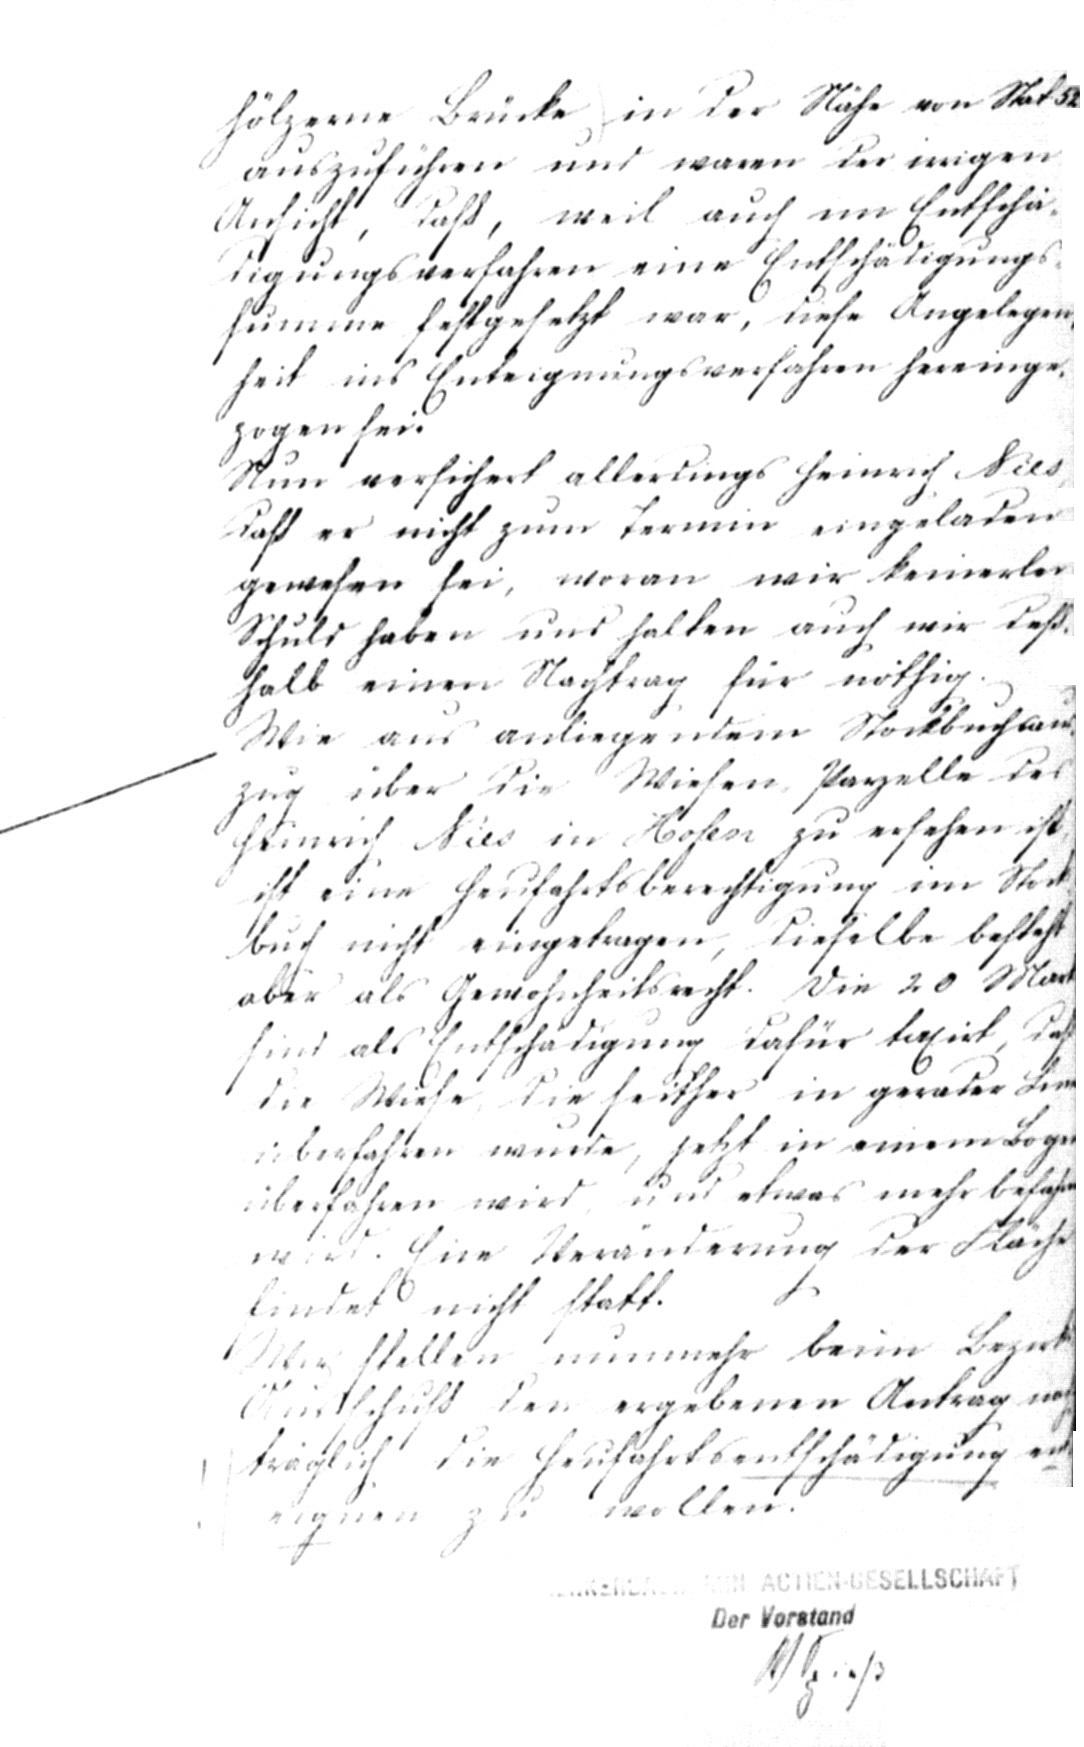 hölzerne Brücke in der Nähe von Stat 52
auszuführen und waren der irrigen
Ansicht, daß, weil auch im Entschä-
digungsverfahren eine Entschädigungs-
summe festgesetzt war, diese Angelegen-
heit ins Enteignungsverfahren hereinge-
zogen sei.
Nun versichert allerdings Heinrich Nies
daß er nicht zum Termin eingeladen
gewesen sei, woran wir keinerlei
Schuld haben und halten auch wir deß-
halb einen Nachtrag für nöthig.
Wie aus anliegendem Stockbuchsaus-
zug über die Wiesen-Parzelle des
Heinrich Nies in Hofen zu ersehen ist,
ist eine Heufahrtsberechtigung im Stock
buch nicht eingetragen, dieselbe besteht
aber als Gewohnheitsrecht. Die 20 Mark
sind als Entschädigung dafür taxirt, daß
die Wiese, die seither in gerader Linie
überfahren wurde, jetzt in einem Bogen
überfahren wird, und etwas mehr befahren
wird. Eine Veränderung der Fläche
findet nicht statt.
Wir stellen nunmehr beim Bezirks
Ausschuß den ergebenen Antrag nach
träglich die Heufahrtsentschädigung ent
eignen zu wollen.
ACTIEN-GESELLSCHAFT
Der Vorstand
Spieß